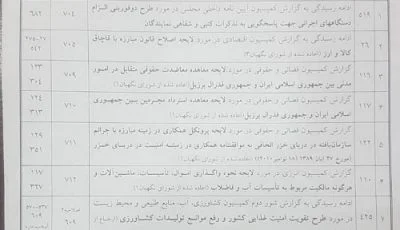 ۱ ۵۱۹ ادامه رسیدگی به گزارش کمیسیون آیین نامه داخلی مجلس در مورد طرح دوفوریتی الزام ۷۰۴ ۶۸۲
دستگاههای اجرائی جهت پاسخگویی به تذکرات کتبی و شفاهی نمایندگان
۲ ۲۶ ادامه رسیدگی به گزارش کمیسیون اقتصادی در مورد لایحه اصلاح قانون مبارزه با قاچاق ۷۰۵
کالا و ارز (اعاده شده از شورای نگهبان) ۵۴۲
۳ ۱۱۶ گزارش کمیسیون قضائی و حقوقی در مورد لایحه معاهده معاضدت حقوقی متقابل در امور ۷۰۹ ۱۲۳
مدنی بین جمهوری اسلامی ایران و جمهوری فدرال برزیل (اعاده شده از شورای نگهبان) ۳۰۴
۴ ۱۱۷ گزارش کمیسیون قضائی و حقوقی در مورد لایحه معاهده استرداد مجرمین بین جمهوری ۷۱۰ ۱۲۴
اسلامی ایران و جمهوری فدرال برزیل (اعاده شده از شورای نگهبان) ۳۱۳
۵ ۱۲۲ گزارش کمیسیون قضائی و حقوقی در مورد لایحه پروتکل همکاری در زمینه مبارزه با جرائم ۷۱۱ ۱۲۹
سازمان‌یافته در دریای خزر الحاقی به موافقتنامه همکاری در زمینه امنیت در دریای خزر ۳۵۱
(مورخ ۲۷ آبان ۱۳۸۹) (اعاده شده از شورای نگهبان)
۶ ۱۱۰ گزارش کمیسیون عمران در مورد لایحه نحوه واگذاری اموال، تأسیسات، ماشین‌آلات و ۷۱۲ ۱۱۷
هرگونه مالکیت مربوط به تأسیسات آب و فاضلاب (اعاده شده از شورای نگهبان) ۳۲۷
۷ ۴۲۵ رسیدگی به گزارش شور دوم کمیسیون کشاورزی، آب، منابع طبیعی و محیط زیست
در مورد طرح تقویت امنیت غذایی کشور و رفع موانع تولیدات کشاورزی ۶۰۹